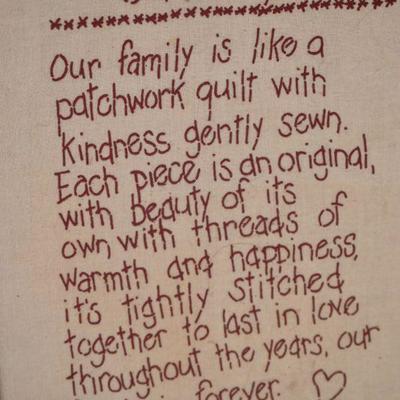 Our family is like a
patchwork quilt with
kindness gently sewn.
Each piece is an original,
with beauty of its
own with threads of
warmth and happiness,
it's tightly stitched
together to last in love
throughout the years, our
forever. ♡